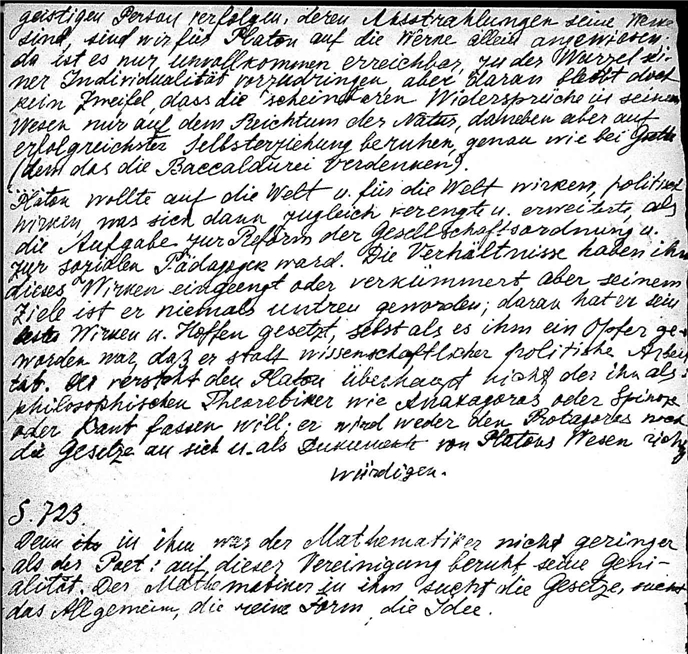 geistigen Person verfolgen, deren Ausstrahlungen seine Werke
sind, sind wir für Platon auf die Werke allein angewiesen,
da ist es nur unvollkommen erreichbar, zu der Wurzel sei-
ner Individualität vorzudringen, aber daran bleibt doch
kein Zweifel, dass die scheinbaren Widersprüche in seinem
Wesen nur auf dem Reichtum der Natur, daneben aber auf
erfolgreichster Selbsterziehung beruhen, genau wie bei Goethe
(dem das die Baccalaurei verdenken).
Platon wollte auf die Welt u. für die Welt wirken, politisch
wirken, was sich dann zugleich verengte u. erweiterte, als
die Aufgabe zur Reform der Gesellschaftsordnung u.
zur sozialen Pädagogik ward. Die Verhältnisse haben ihm
dieses Wirken eingeengt oder verkümmert aber seinem
Ziele ist er niemals untreu geworden; daran hat er sein
Wirken u. Hoffen gesetzt, selbst als es ihm ein Opfer ge-
worden war, daz er statt wissenschaftlicher politische Arbeit
tat. versteht den Platon überhaupt nicht der ihn als
philosophischen Theoretiker wie Anaxagoras oder Spinoza
oder Kant fassen will; er wird weder den Protagoras noch
die Gesetze an sich u. als Dokument von Platons Wesen richtig
würdigen.
S. 723.
Denn in ihm war der Mathematiker nicht geringer
als der Poet: auf dieser Vereinigung beruht seine Geni-
alität. Der Mathematiker in ihm sucht die Gesetze, sucht
das Allgemein, die reine Form, die Idee.